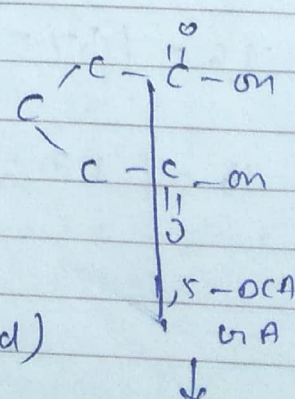 O
C - C - OH
C
C - C - OH
O
1,5 - DCA
d) GA